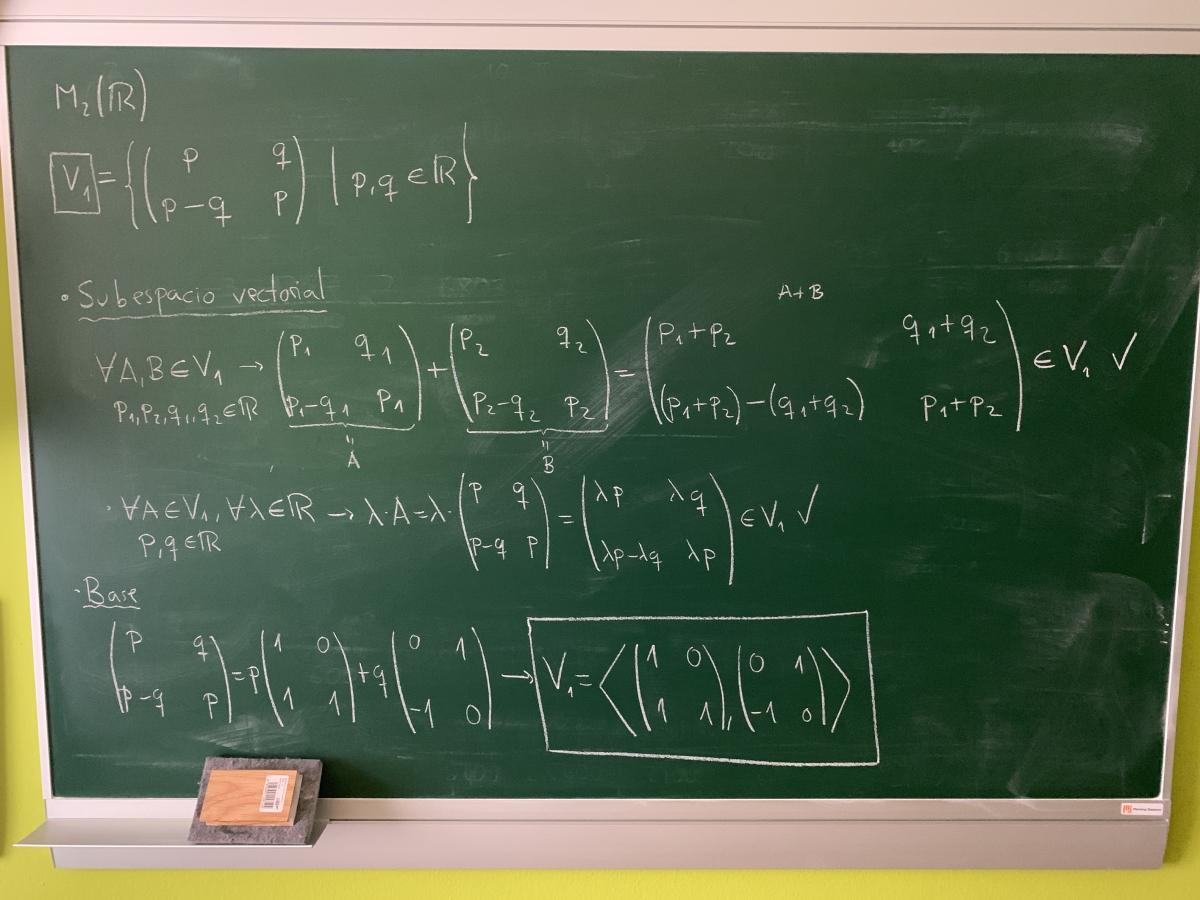 M₂(ℝ)
V₁ = { ( p q ; p−q p ) | p,q ∈ ℝ }
• Subespacio vectorial
A+B
∀A,B ∈ V₁ → ( p₁ q₁ ; p₁−q₁ p₁ ) + ( p₂ q₂ ; p₂−q₂ p₂ ) = ( p₁+p₂ q₁+q₂ ; (p₁+p₂)−(q₁+q₂) p₁+p₂ ) ∈ V₁ ✓
p₁,p₂,q₁,q₂ ∈ ℝ
" "
A B
· ∀A ∈ V₁, ∀λ ∈ ℝ → λ·A = λ· ( p q ; p−q p ) = ( λp λq ; λp−λq λp ) ∈ V₁ ✓
p,q ∈ ℝ
· Base
( p q ; p−q p ) = p ( 1 0 ; 1 1 ) + q ( 0 1 ; −1 0 ) → V₁ = ⟨ ( 1 0 ; 1 1 ), ( 0 1 ; −1 0 ) ⟩